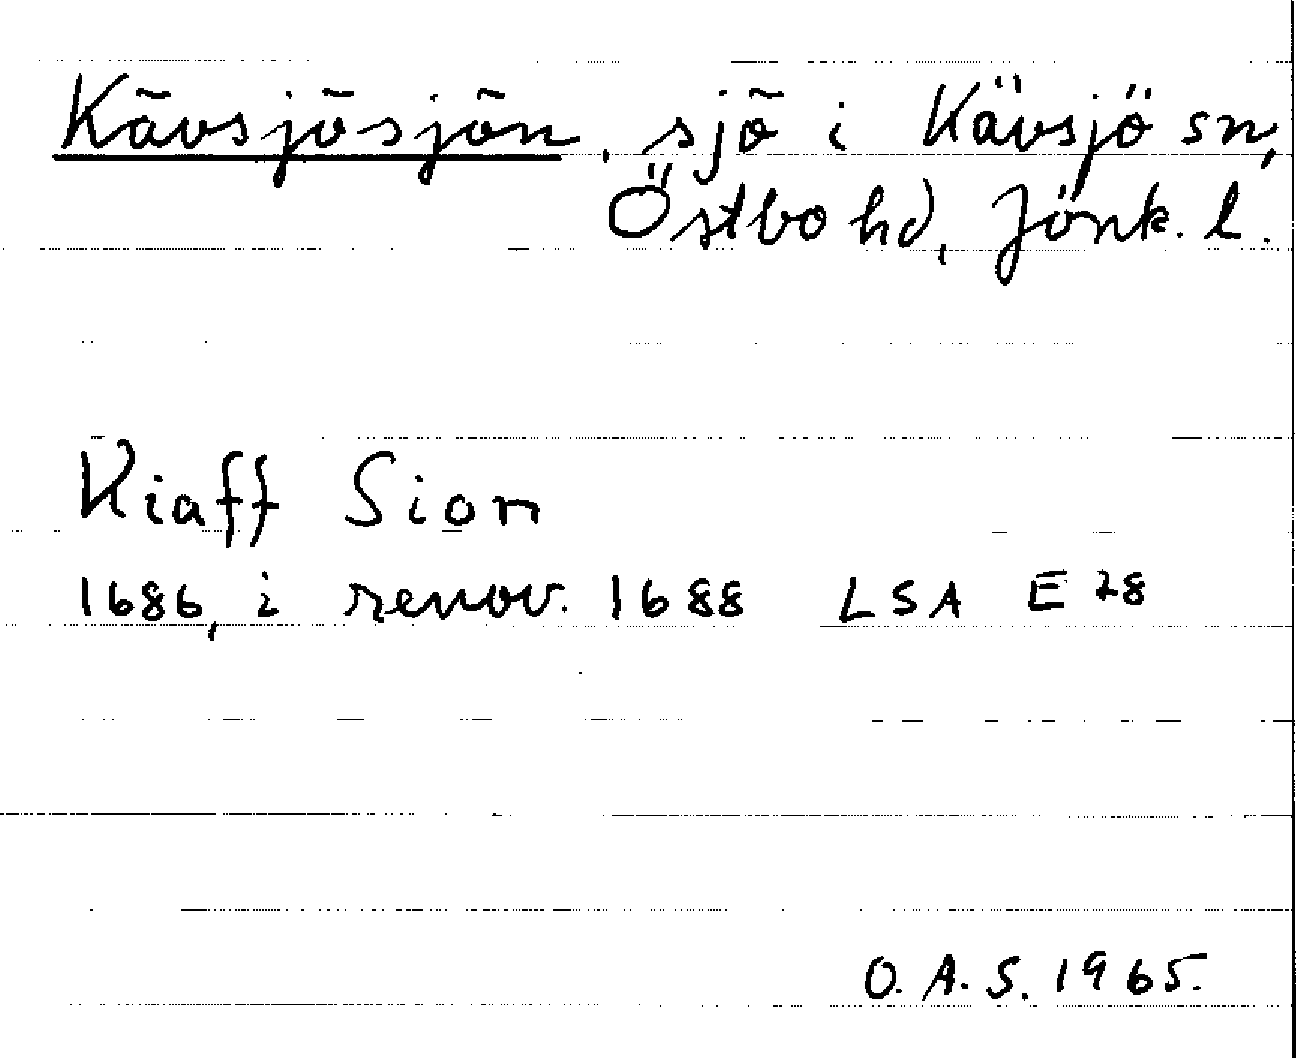 Kävsjösjön, sjö i Kävsjö sn,
Östbo hd, Jönk. l.
Kiaff Sion
1686, i renov. 1688 LSA E 28
O. A. S. 1965.